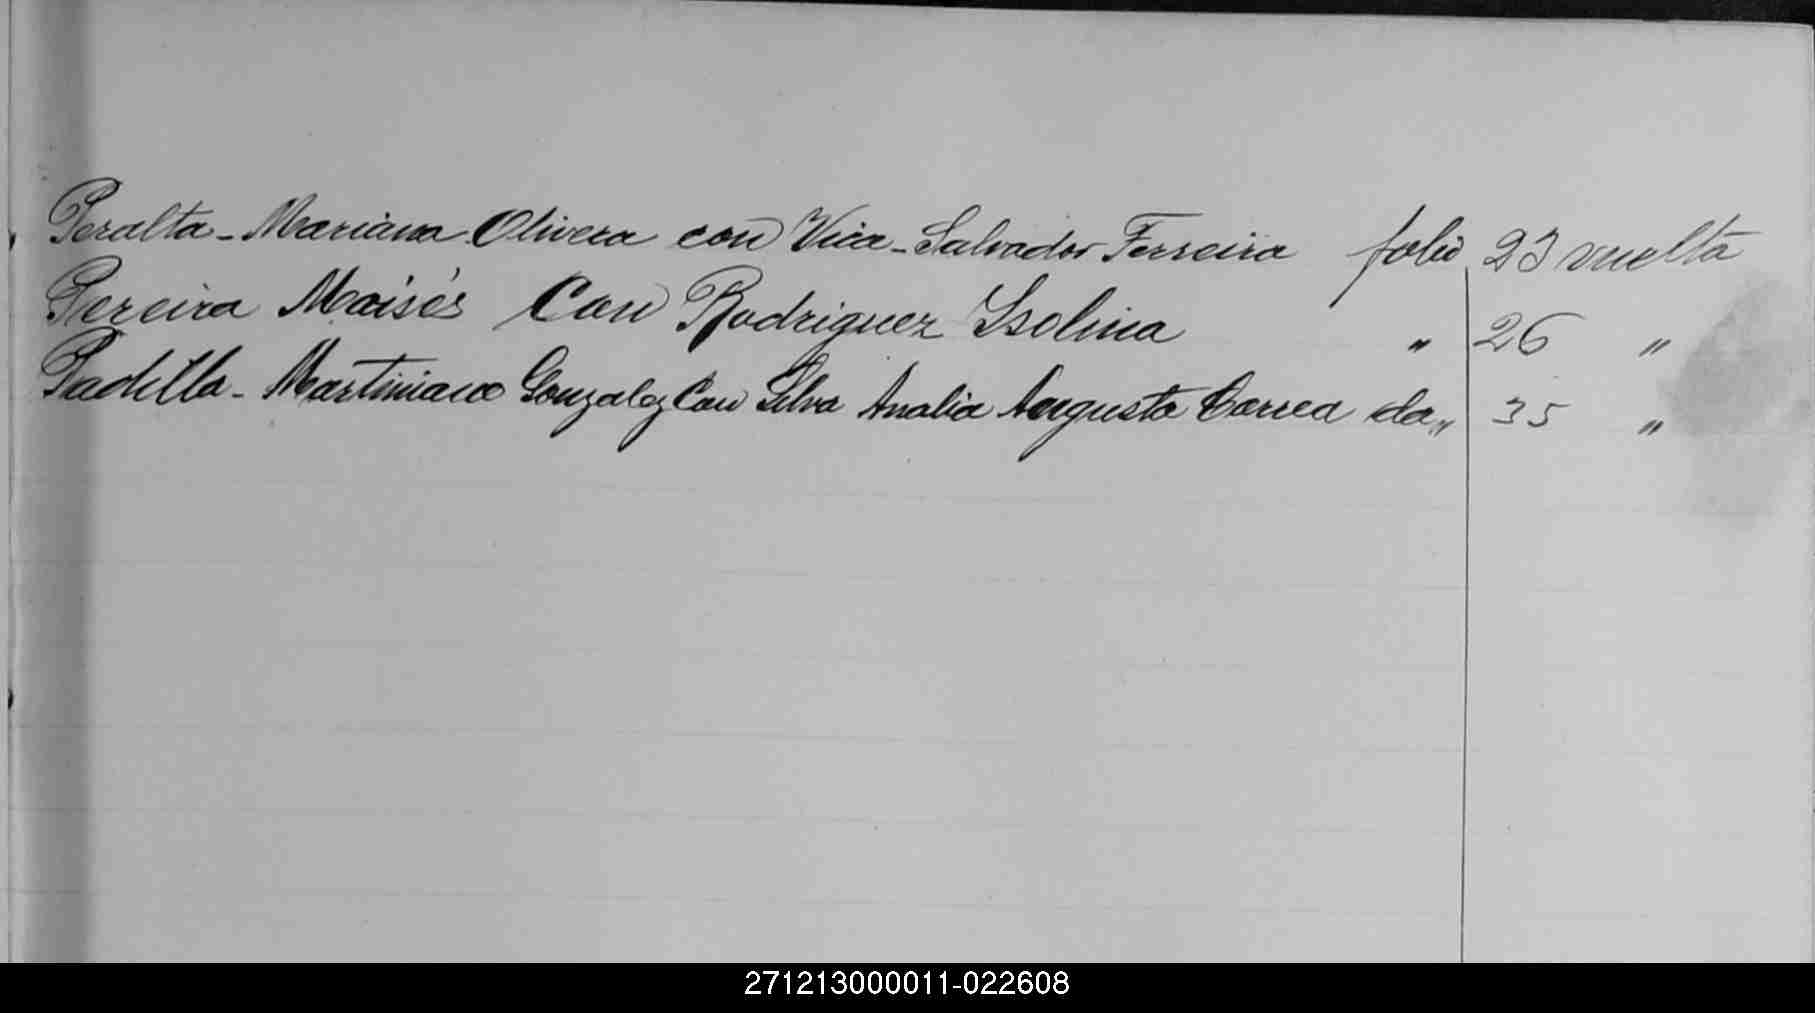 Peralta - Mariana Olivera con Vica - Salvador Ferreira folio 23 vuelta
Pereira Moisés Con Rodriguez Isolina " 26 "
Padilla - Martiniano Gonzalez Con Silva Analia Augusta Correa da " 35 "
271213000011-022608